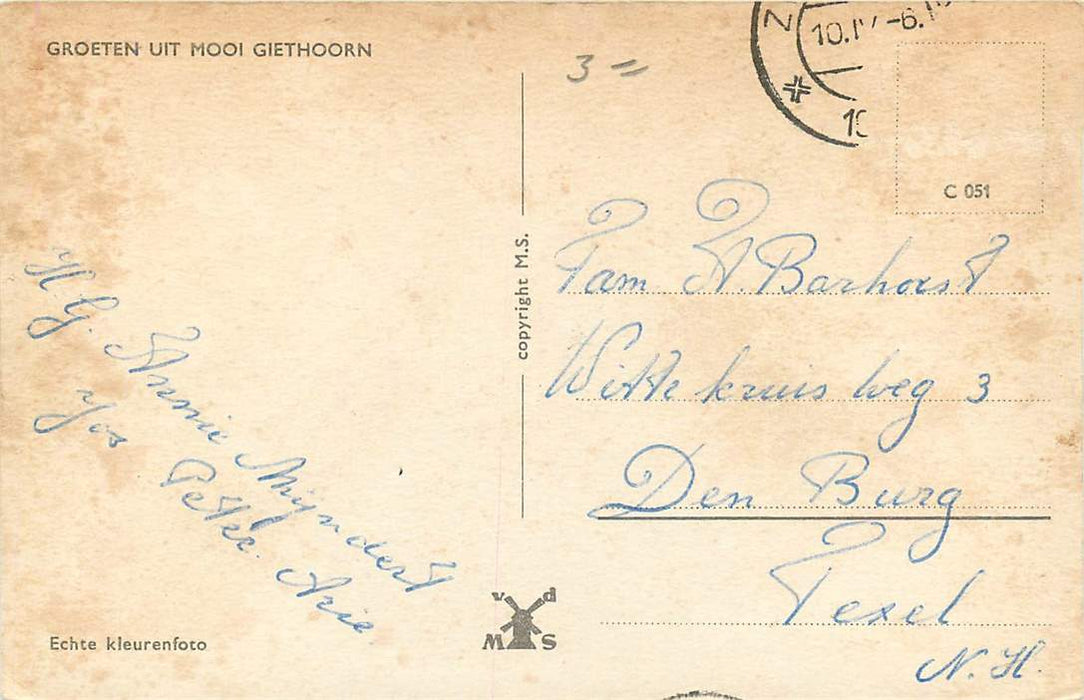 GROETEN UIT MOOI GIETHOORN
3 =
Z 10.IV -6.
C 051
copyright M.S.
H. G. Annie Mijndert
Jos Peter. Arie
Fam A. Barhorst
Witte kruis weg 3
Den Burg
Texel
N. H.
Echte kleurenfoto
v d
M S